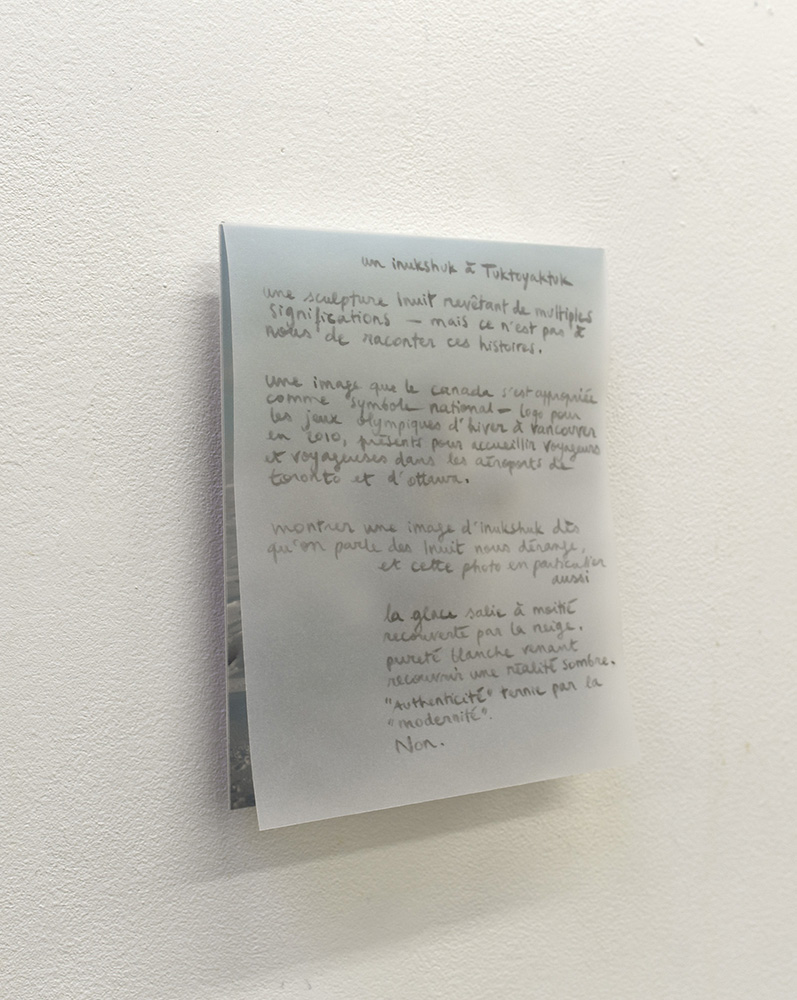 un inukshuk à Tuktoyaktuk
une sculpture Inuit revêtant de multiples
significations — mais ce n'est pas à
nous de raconter ces histoires.
une image que le canada s'est appropriée
comme symbole national — logo pour
les jeux olympiques d'hiver à vancouver
en 2010, présents pour accueillir voyageurs
et voyageuses dans les aéroports de
toronto et d'ottawa.
montrer une image d'inukshuk dès
qu'on parle des Inuit nous dérange,
et cette photo en particulier
aussi
la glace salie à moitié
recouverte par la neige.
pureté blanche venant
recouvrir une réalité sombre.
"Authenticité" ternie par la
"modernité".
Non.